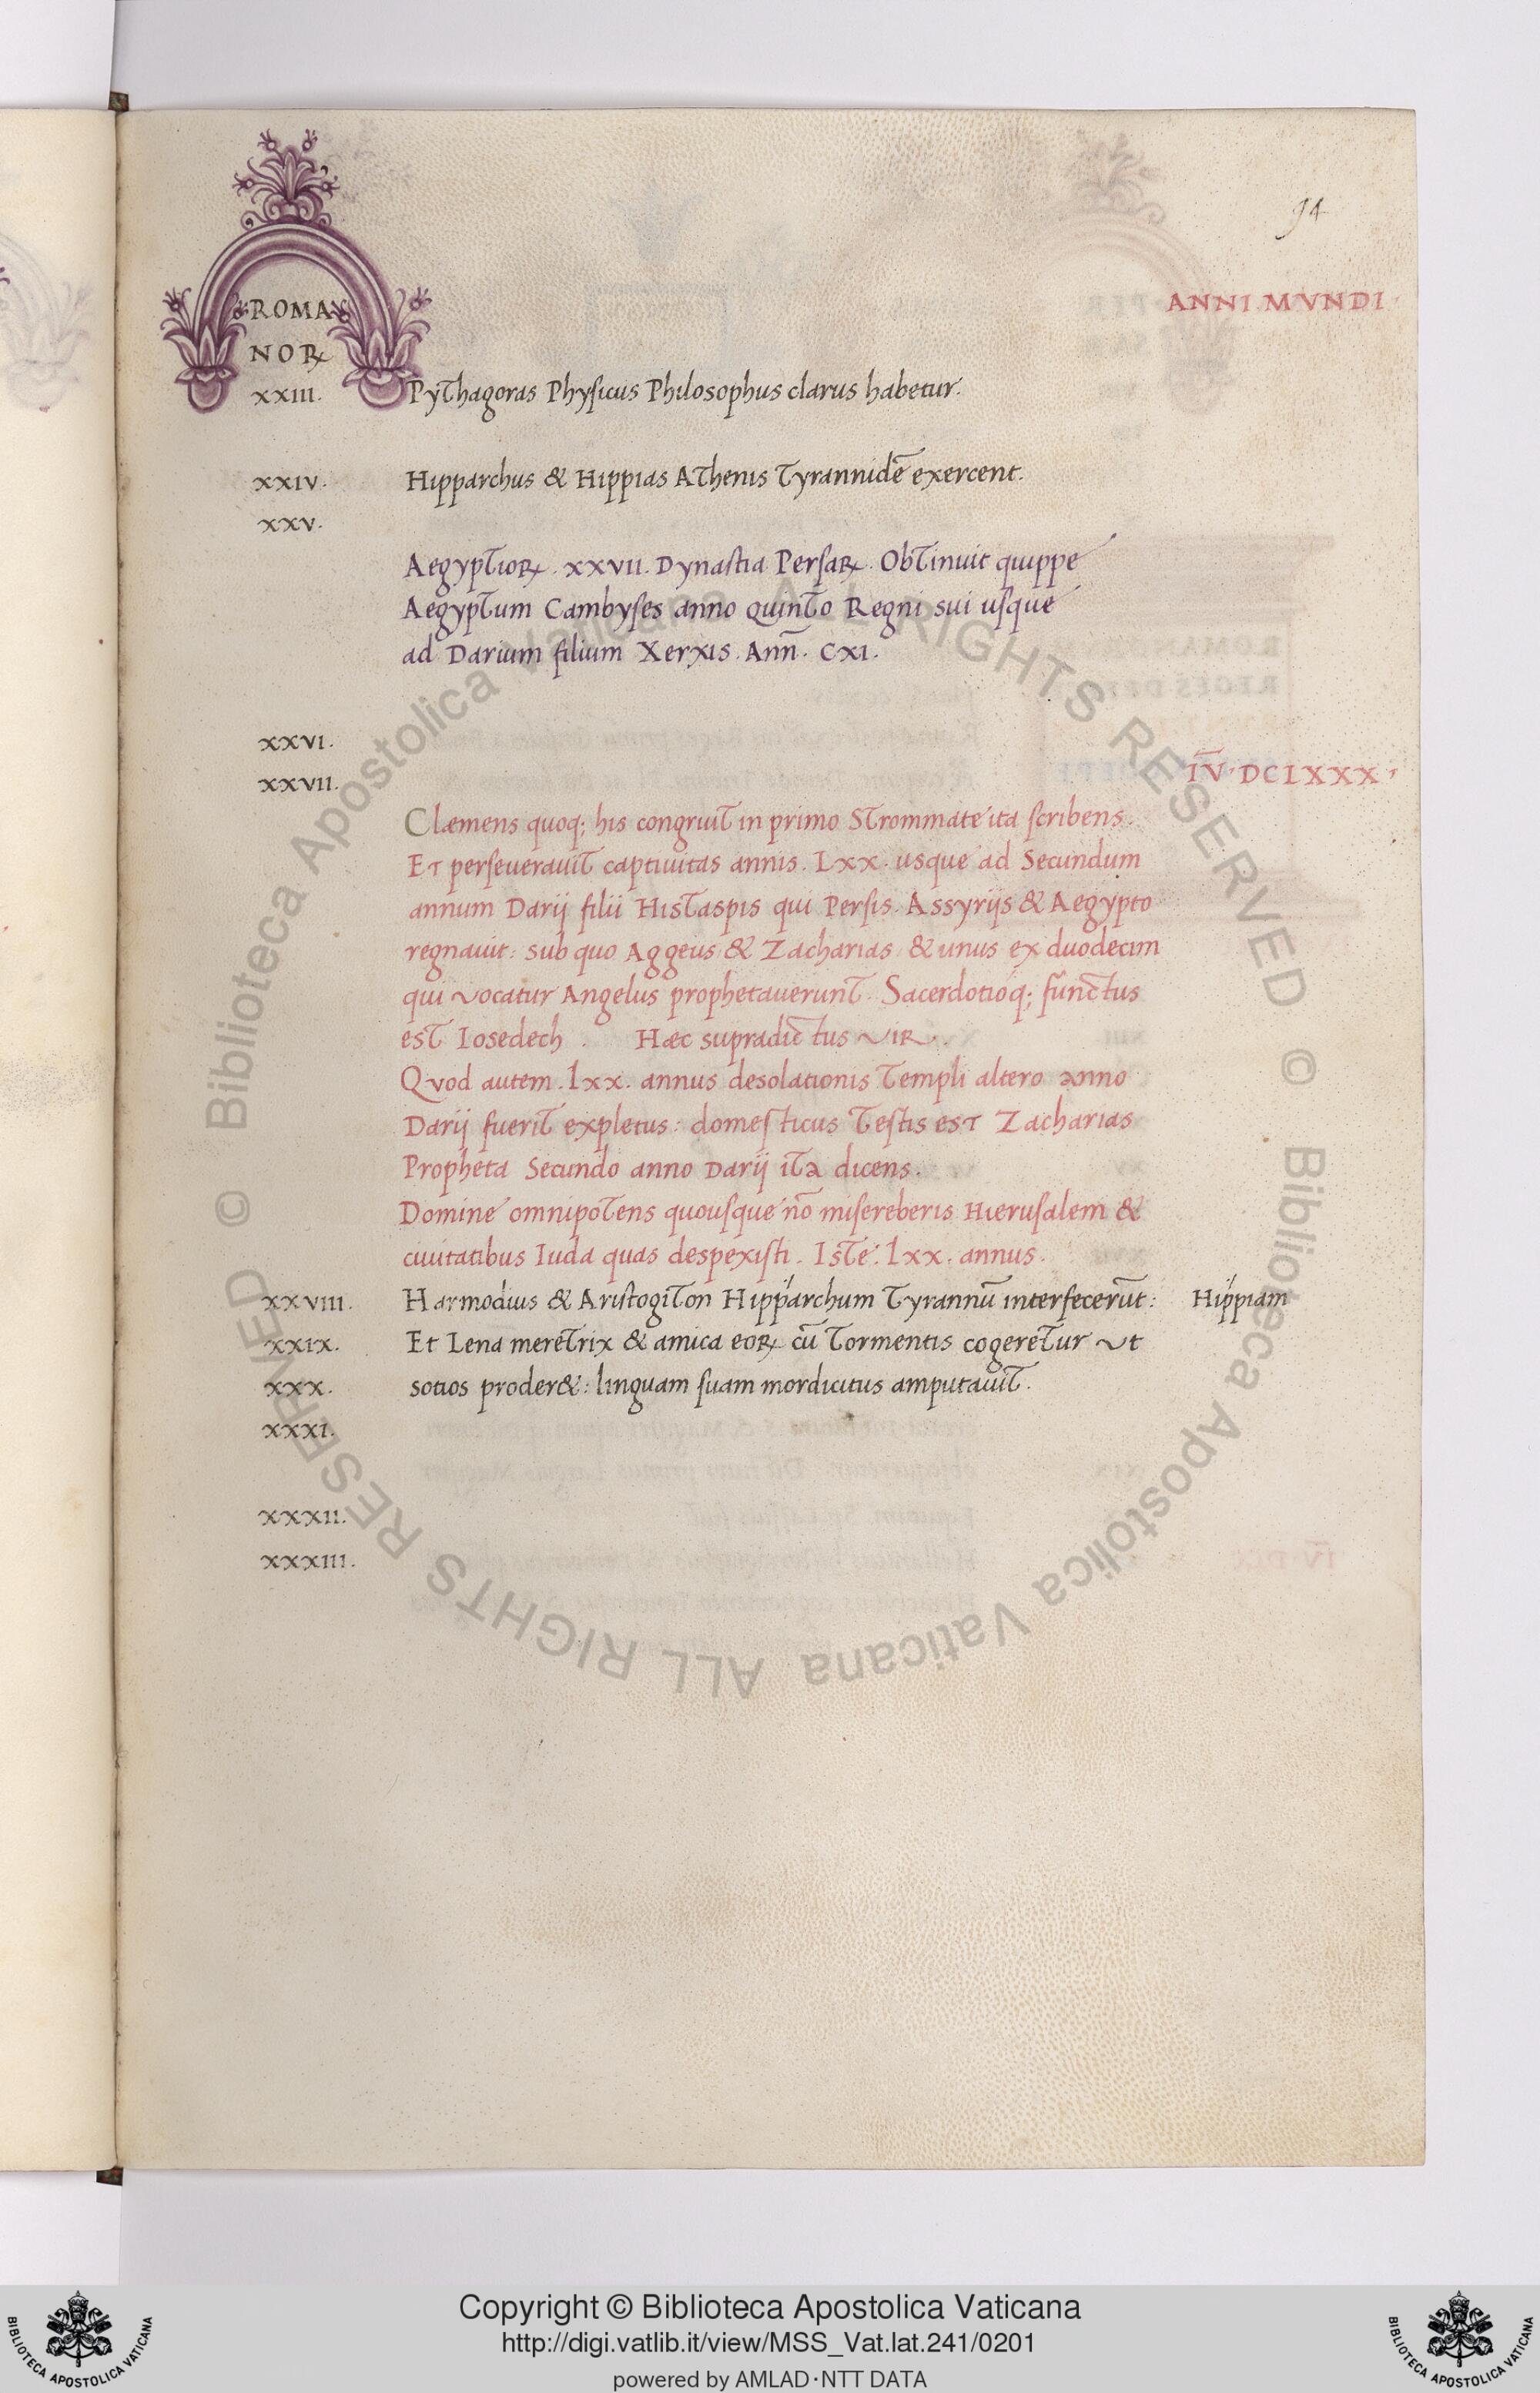 94
ROMA
NOꝜ
ANNI MVNDI
XXIII. Pythagoras Physicus Philosophus clarus habetur.
XXIV. Hipparchus & Hippias Athenis Tyrannidē exercent.
XXV.
AegyptioꝜ. XXVII. Dynastia PersaꝜ. Obtinuit quippe
Aegyptum Cambyses anno quinto Regni sui usque
ad Darium filium Xerxis. Ann̄. CXI.
XXVI.
XXVII. IV̅·DCLXXX·
Clæmens quoq; his congruit in primo Strommate ita scribens.
Et perseueravit captivitas annis. Lxx. usque ad Secundum
annum Darij filii Histaspis qui Persis. Assyrijs & Aegypto
regnavit: sub quo Aggeus & Zacharias & unus ex duodecim
qui vocatur Angelus prophetaverunt. Sacerdotioq; functus
est Iosedech. Hæc supradictus vir.
Qvod autem. lxx. annus desolationis Templi altero anno
Darij fuerit expletus: domesticus Testis est Zacharias
Propheta Secundo anno Darij ita dicens.
Domine omnipotens quousque nō misereberis Hierusalem &
civitatibus Iuda quas despexisti. Iste: lxx. annus.
XXVIII. Harmodius & Aristogiton Hipparchum Tyrannū interfecerūt: Hippiam
XXIX. Et Lena meretrix & amica eoꝜ cū Tormentis cogeretur vt
XXX. sotios proder&: linguam suam mordicitus amputavit.
XXXI.
XXXII.
XXXIII.
© Biblioteca Apostolica Vaticana ALL RIGHTS RESERVED
© Biblioteca Apostolica Vaticana ALL RIGHTS RESERVED
Copyright © Biblioteca Apostolica Vaticana
http://digi.vatlib.it/view/MSS_Vat.lat.241/0201
powered by AMLAD·NTT DATA
BIBLIOTECA APOSTOLICA VATICANA
BIBLIOTECA APOSTOLICA VATICANA